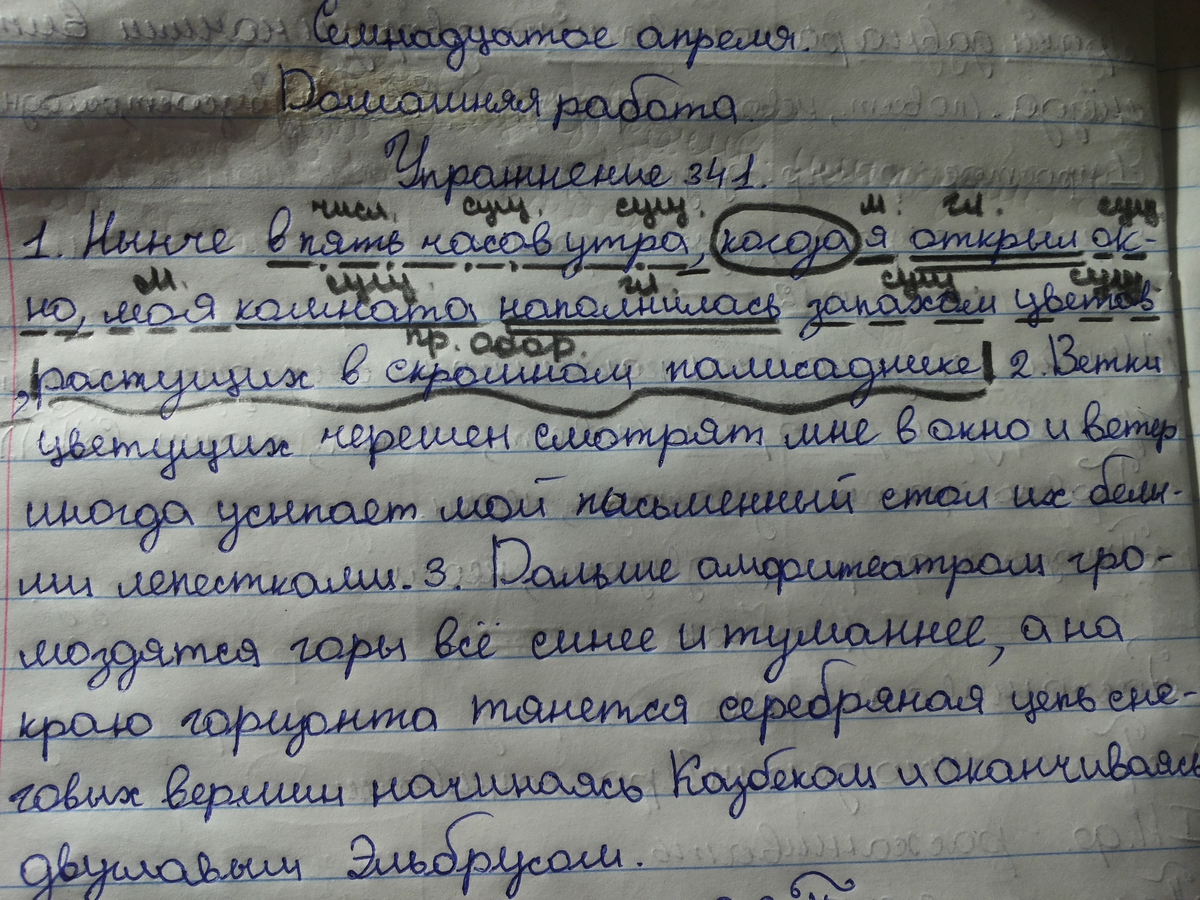 Семнадцатое апреля.
Домашняя работа
Упражнение 341.
числ. сущ. сущ. м. гл. сущ
1. Нынче в пять часов утра, когда я открыл ок-
м. сущ. гл. сущ сущ
но, моя комната наполнилась запахом цветов
пр. обор.
, растущих в скромном палисаднике 2. Ветки
цветущих черешен смотрят мне в окно и ветер
иногда усыпает мой письменный стол их белы-
ми лепестками. 3. Дальше амфитеатром гро-
моздятся горы всё синее и туманнее, а на
краю горизонта тянется серебряная цепь сне-
говых вершин начинаясь Казбеком и оканчиваясь
двуглавым Эльбрусом.